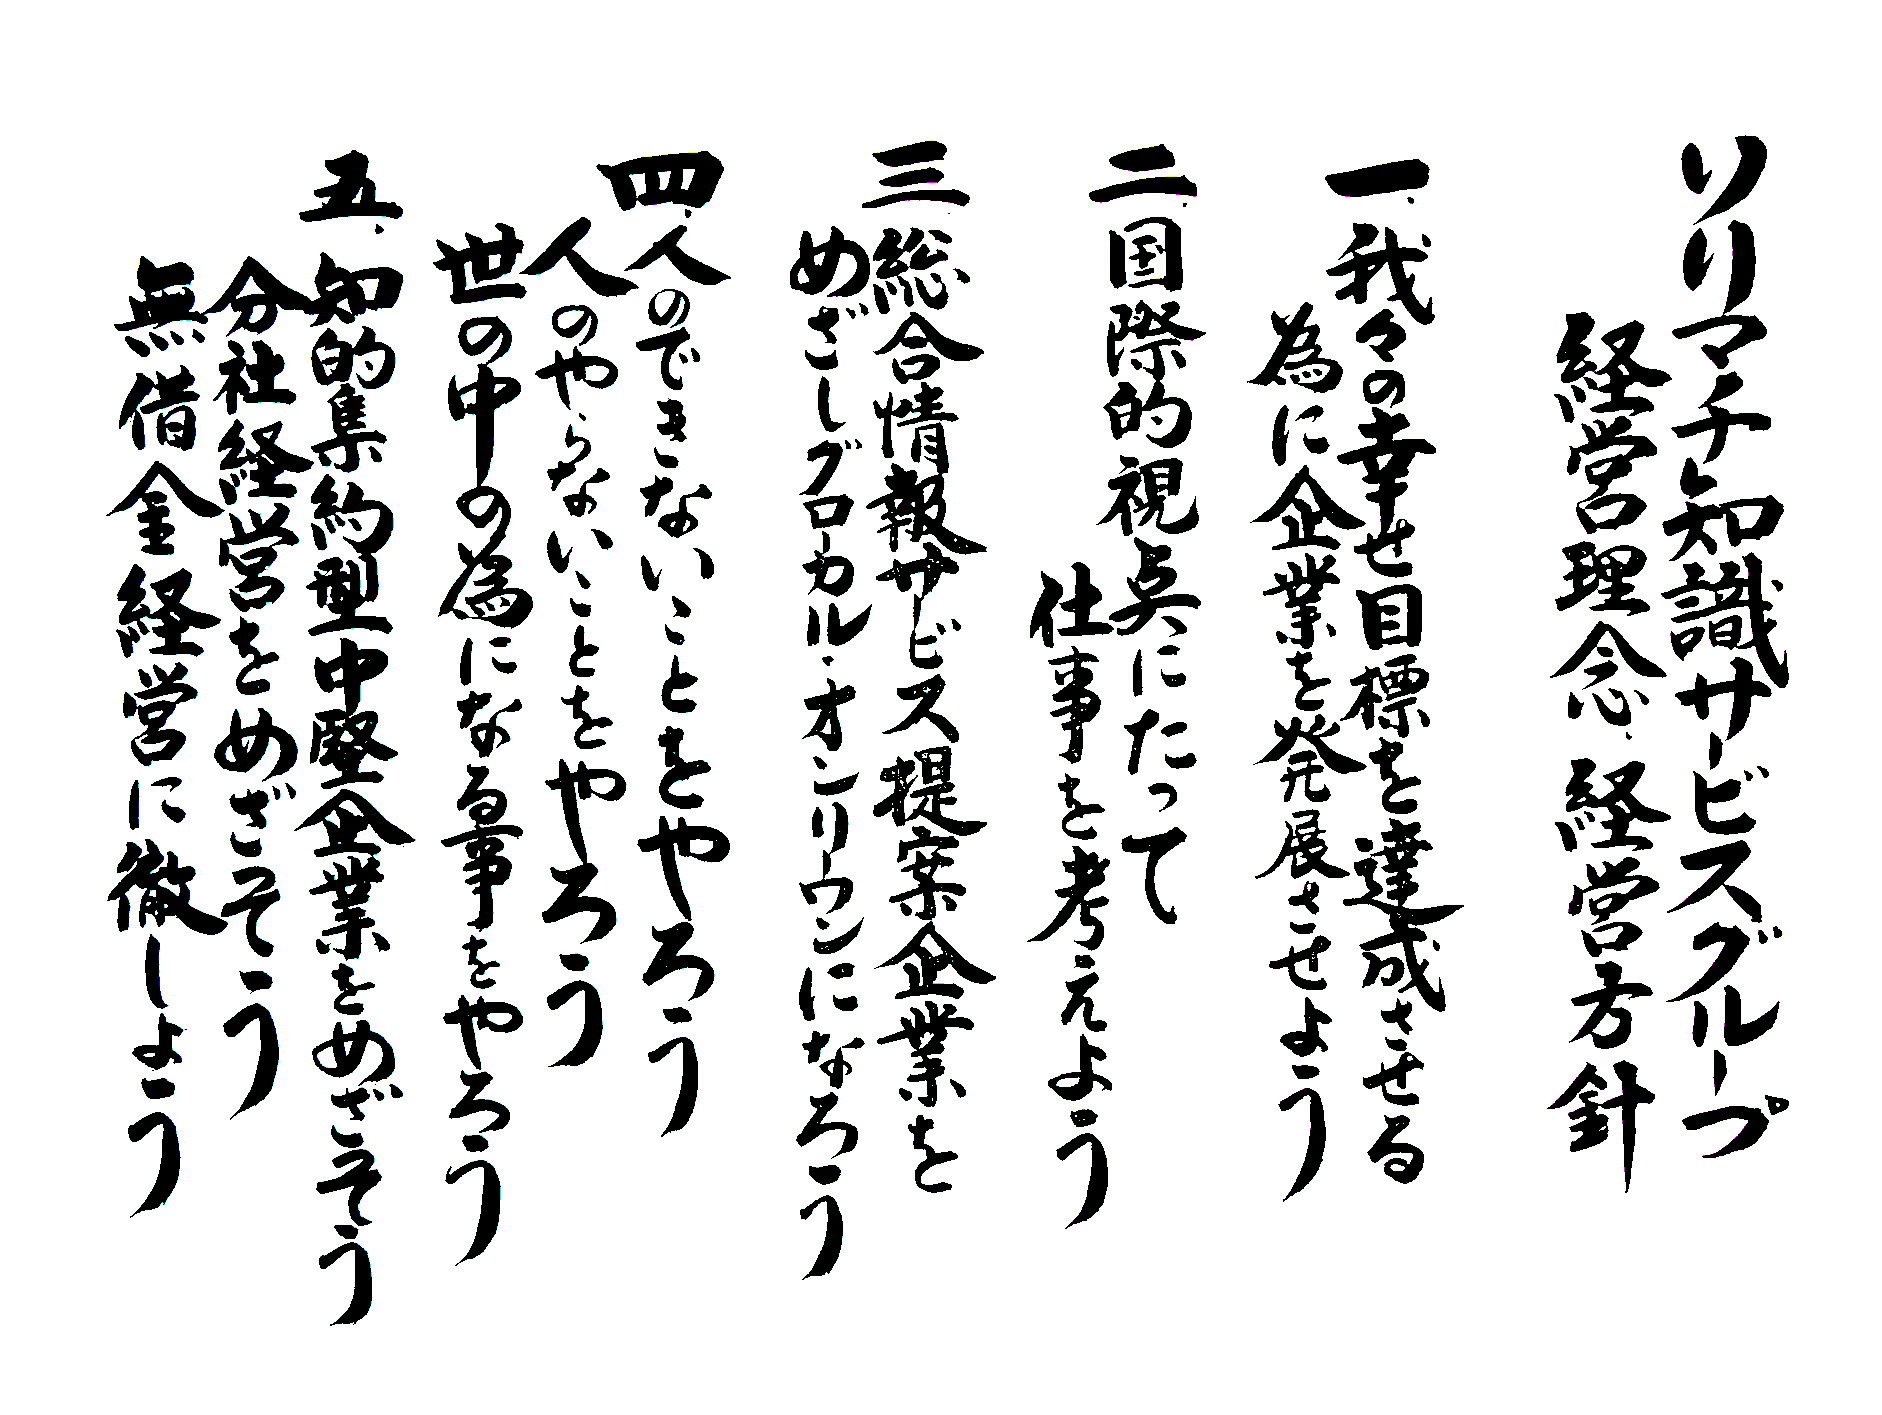 ソリマチ知識サービスグループ
経営理念・経営方針
一、我々の幸せ目標を達成させる
為に企業を発展させよう
二、国際的視点にたって
仕事を考えよう
三、総合情報サービス提案企業を
めざしグローカル・オンリーワンになろう
四、人のできないことをやろう
人のやらないことをやろう
世の中の為になる事をやろう
五、知的集約型中堅企業をめざそう
分社経営をめざそう
無借金経営に徹しよう